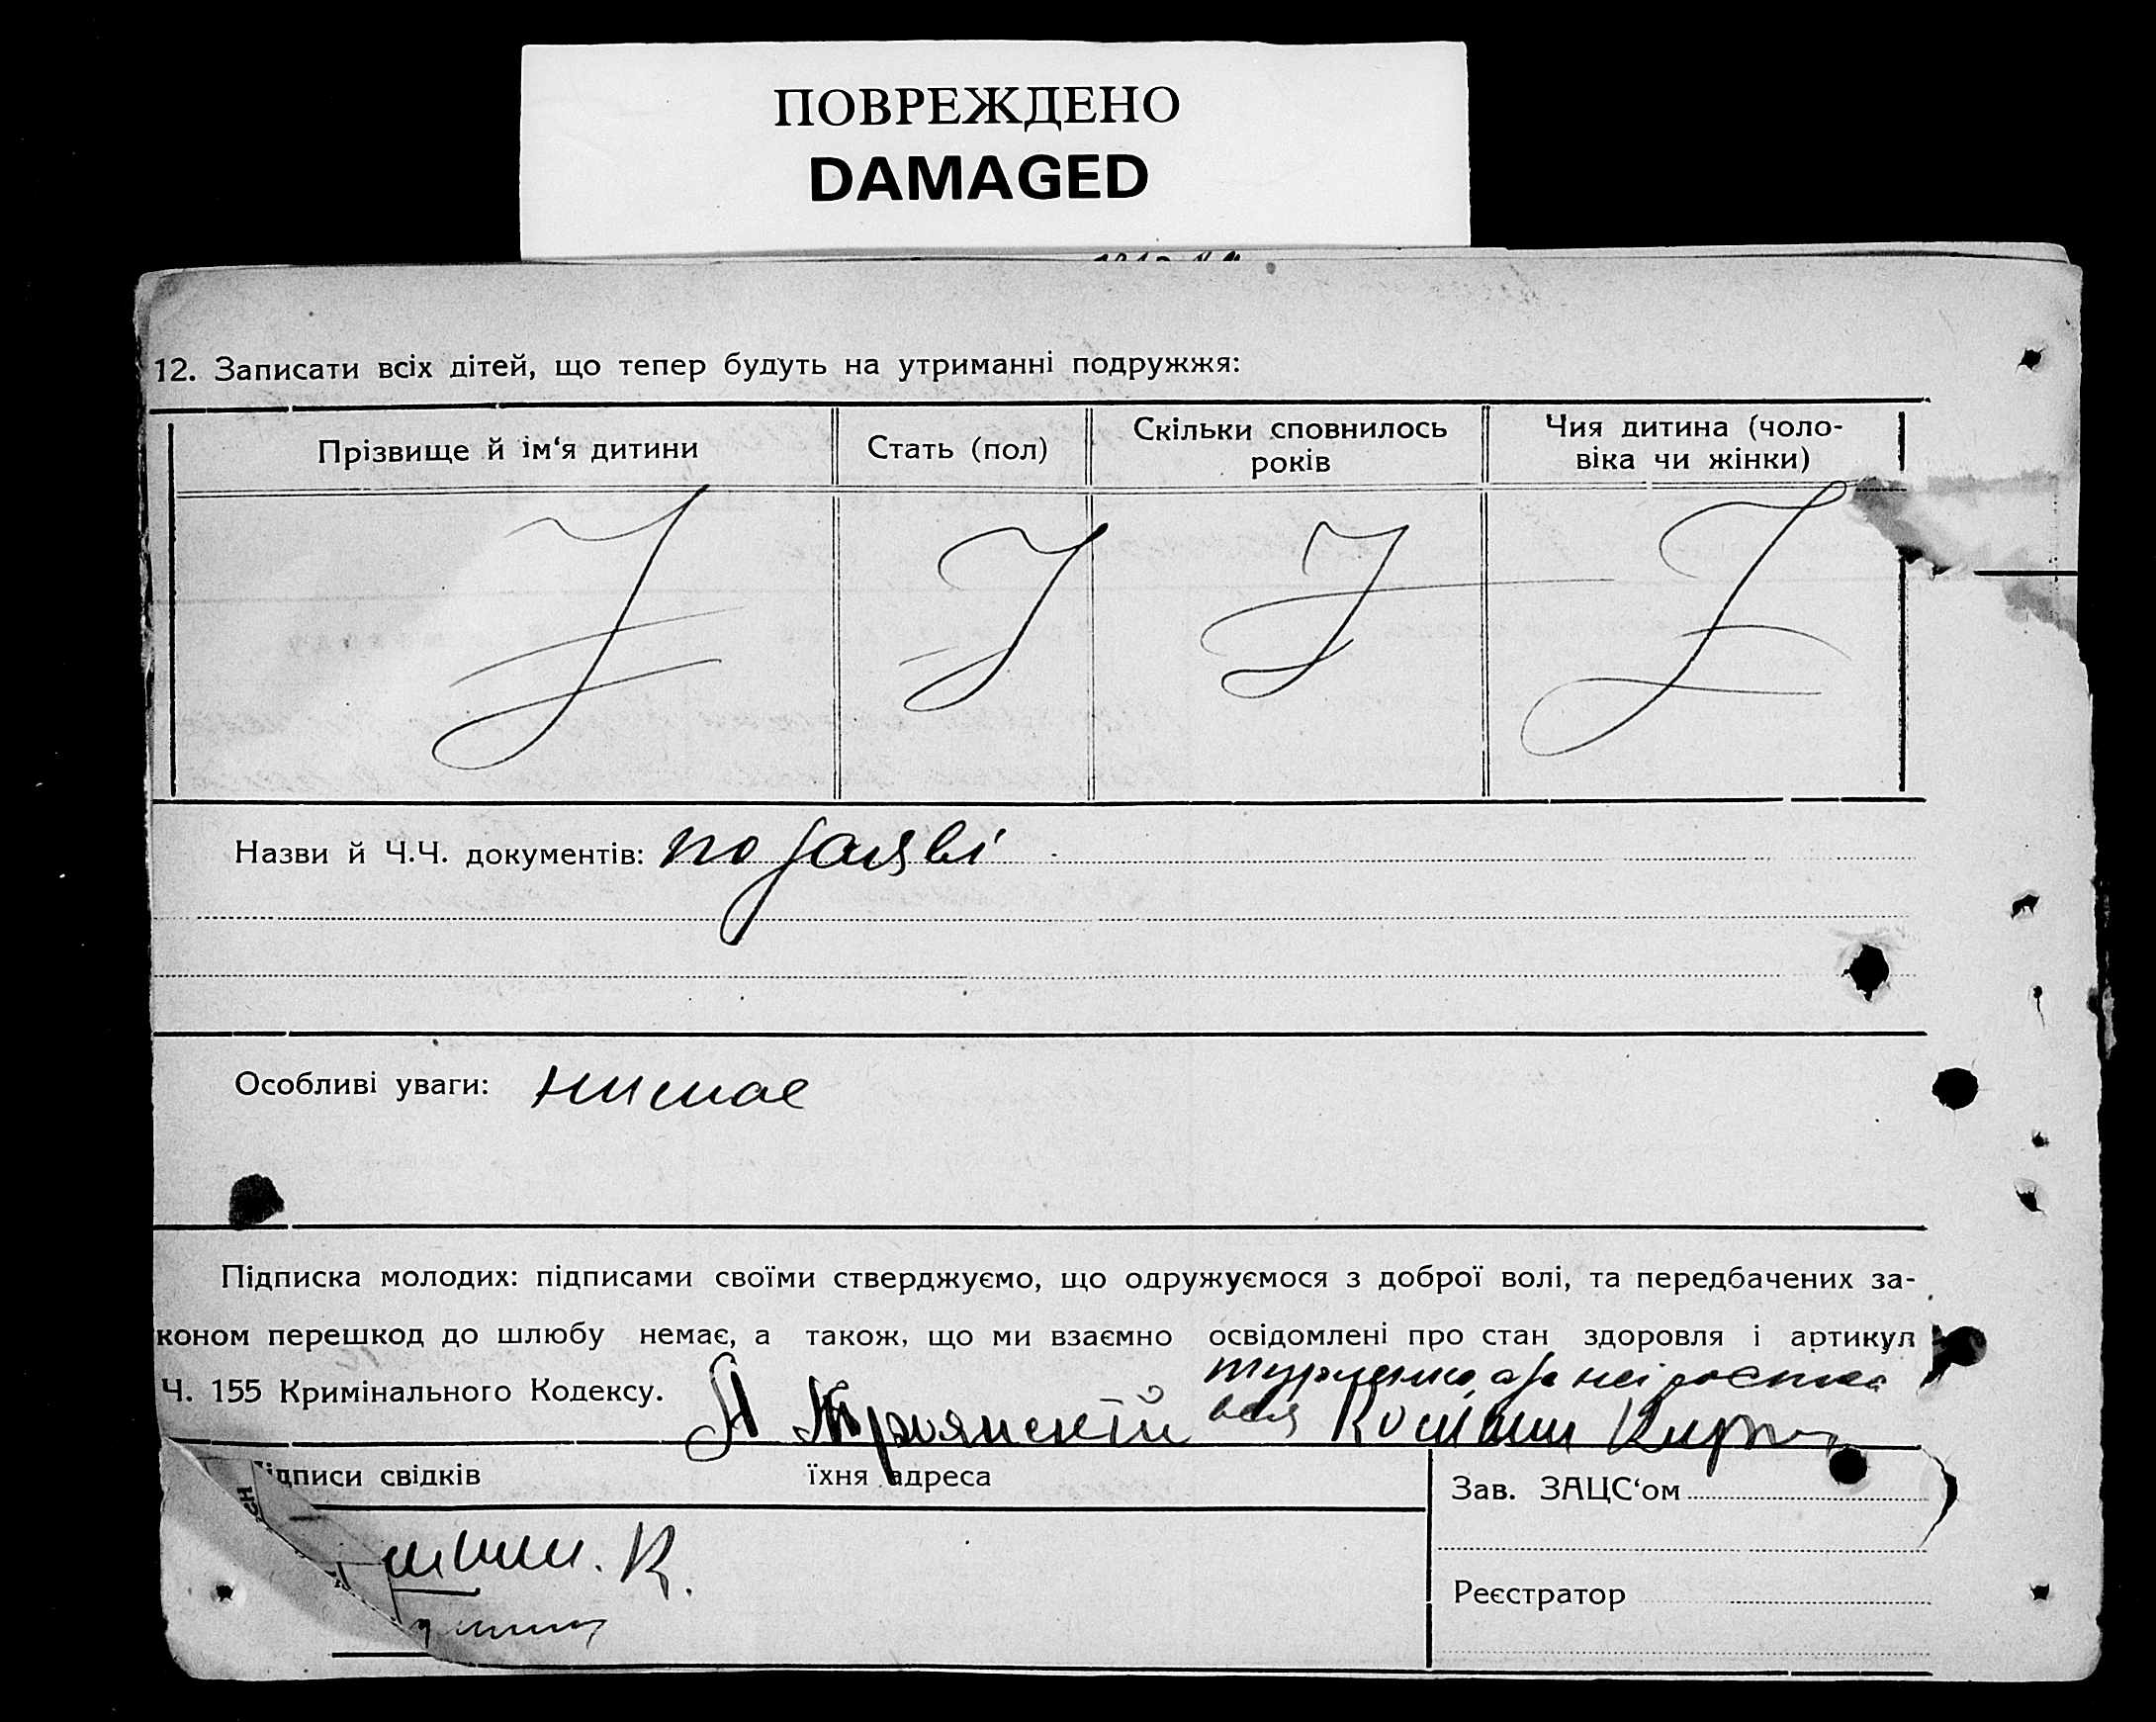 ПОВРЕЖДЕНО
DAMAGED
12. Записати всіх дітей, що тепер будуть на утриманні подружжя:
Прізвище й ім‘я дитини
Стать (пол)
Скільки сповнилось
років
Чия дитина (чоло-
віка чи жінки)
Назви й Ч.Ч. документів: по заяві
Особливі уваги: нимае
Підписка молодих: підписами своїми стверджуємо, що одружуємося з доброї волі, та передбачених за-
коном перешкод до шлюбу немає, а також, що ми взаємно освідомлені про стан здоровля і артикул
Ч. 155 Кримінального Кодексу.
підписи свідків
їхня адреса
Зав. ЗАЦС‘ом
К.
Реєстратор